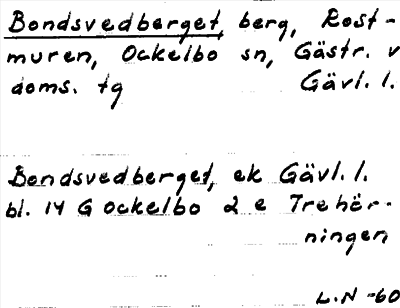 Bondsvedberget, berg, Rost-
muren, Ockelbo sn, Gästr. v
doms. tg Gävl. l.
Bondsvedberget, ek Gävl. l.
bl. 14 G Ockelbo 2 e Trehör-
ningen
L.N -60